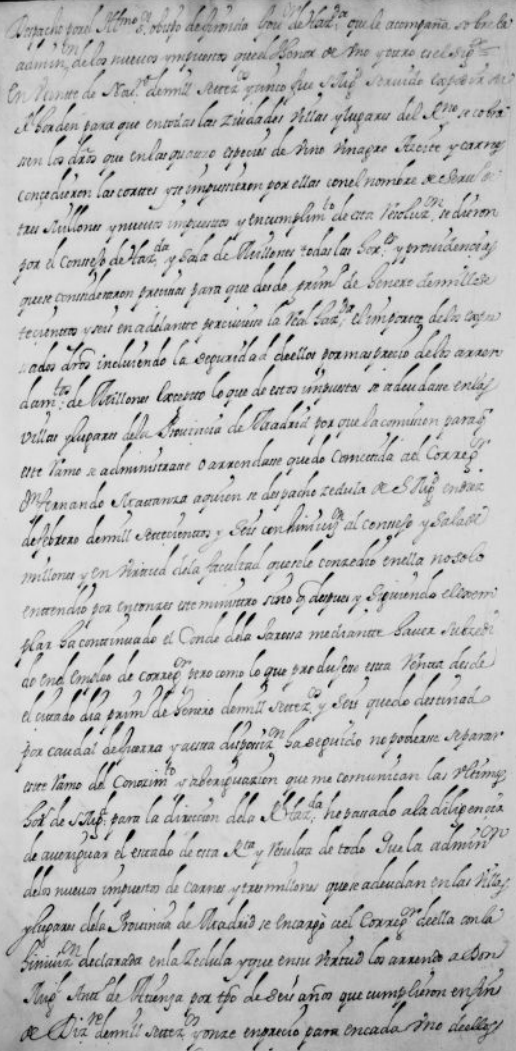 Despacho por el Ill.mo S.r obispo de Gironda Gov.or de Haz.da que le acompaña sobre la
admin.on de los nuevos impuestos que el Honor de Uno y otro es el sig.te
En Veinte de Nov.e de mill setez.os y cinco fue S Mag.d servido expedir su
R.l horden para que en todas las Ziudades Villas y lugares del R.no se cobra
sen los dros que en las quattro especies de Vino Vinagre Azeite y carnes
conzedieron las cortes y se impusieron por ellas con el nombre de servi.o de
tres Millones y nuevos impuestos y en cumplim.to de esta Resoluz.on se dieron
por el Consejo de Haz.da y Sala de Millones todas las hor.es y providencias
que se consideraron precisas para que desde prim.o de henero de mill se
tecientos y seis en adelante perciviese la Real haz.da el importe de los expre
sados dros incluiendo la seguridad de ellos por mas precio de los arren
dam.tos de Millones excepto lo que de estos impuestos se adeudase en las
villas y lugares dela Provincia de Madrid por que la comision para q.e
este Ramo se administrase o arrendase quedo Cometida al Correg.or
D.n fernando Mattanza a quien se despacho zedula de S Mag.d en diez
de febrero de mill settecientos y Seis con hiniviz.on al consejo y Sala de
millones y en Virtud dela facultad que se le conzedio en ella no solo
entendio por entonzes este ministro sino q.e despues y siguiendo el exem
plar ha continuado el Conde dela Jarossa mediante haver subzedi
do en el empleo de correg.or pero como lo que produjese esta Rentta desde
el citado dia prim.o de henero de mill settez.os y Seis quedo destinad
por caudal de Guerra y a esta disposiz.on ha seguido no poderse separar
este Ramo del Conozim.to y aberiguazion que me comunican las Vltimas
hor.s de S Mag.d para la direccion dela R.l Haz.da he passado a la diligencia
de averiguar el estado de esta R.ta y resulta de todo Que la admin.on
de los nuevos impuestos de carnes y tres millones que se adeudan en las Villas
y lugares dela Provincia de Madrid se encargo a el Correg.or de ella con la
hiniviz.on declarada en la Zedula y que en su virtud los arrendo a Don
Mig.l Ant.o de Atienza por tpo de seis años que cumplieron en fin
de Diz.re de mill settez.os y onze en precio para en cada Uno de ellos